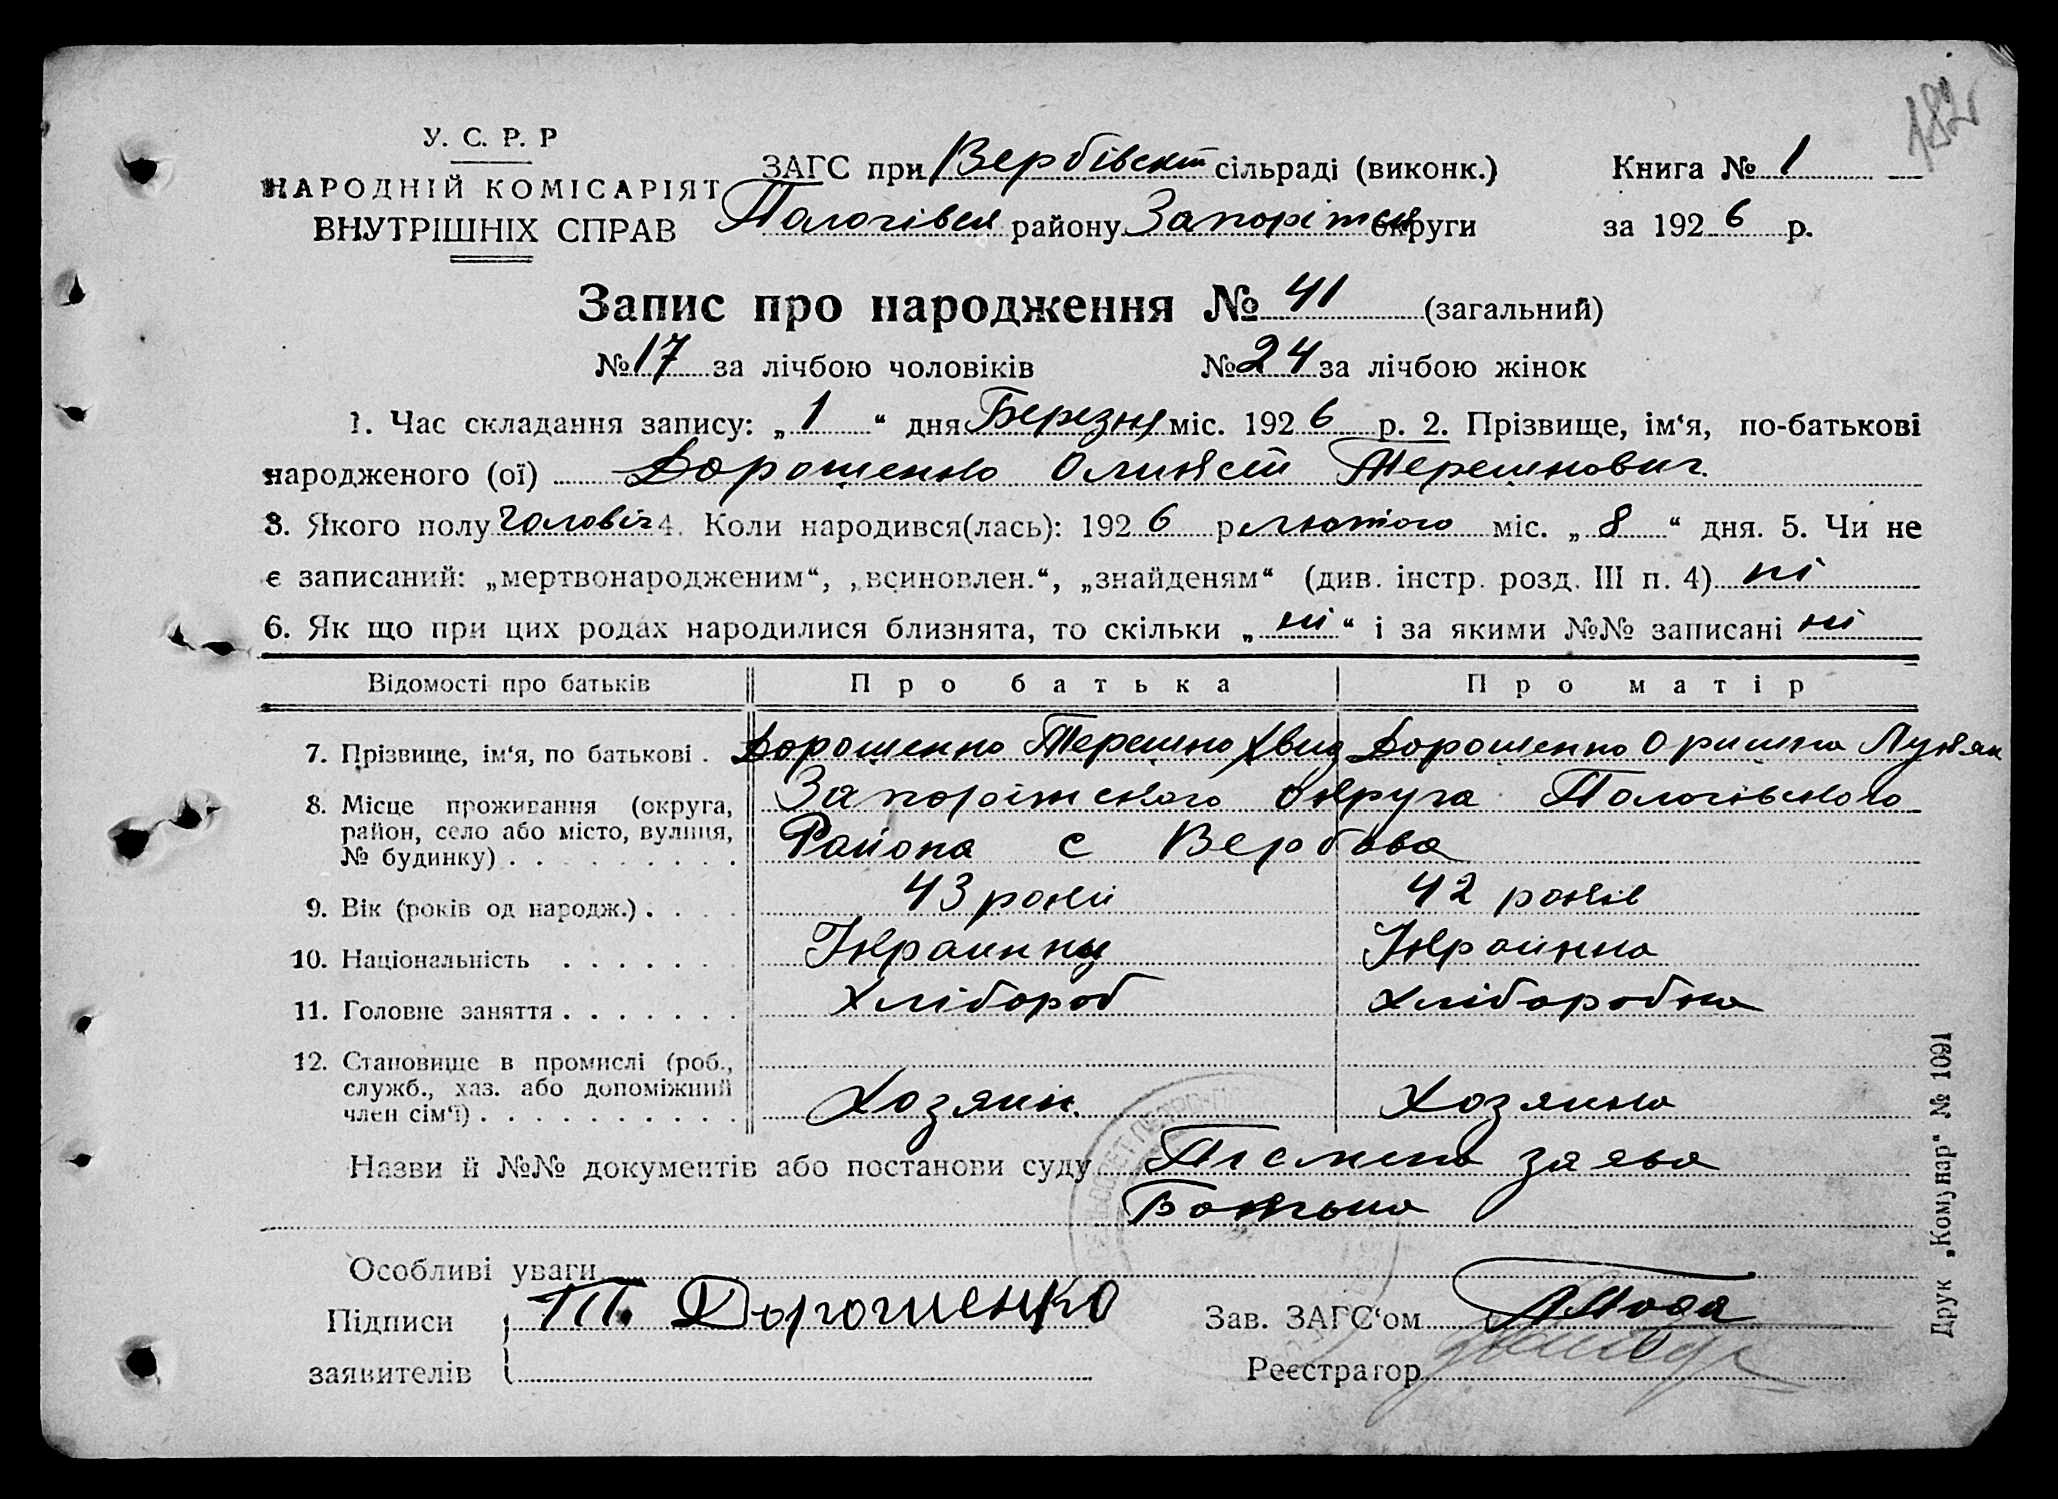 182
У. С. Р. Р
НАРОДНІЙ КОМІСАРІЯТ
ВНУТРІШНІХ СПРАВ
ЗАГС при Вербівскт сільраді (виконк.) Книга № 1
Пологівся району Запоріт округи за 1926 р.
Запис про народження № 41 (загальний)
№ 17 за лічбою чоловіків № 24 за лічбою жінок
1. Час складання запису: „1“ дня Березня міс. 1926 р. 2. Прізвище, ім‘я, по-батькові
народженого (ої) Дорошенко Терешкович
3. Якого полу Чоловіч 4. Коли народився(лась): 1926 р лютого міс. „8“ дня. 5. Чи не
є записаний: „мертвонародженим“, „всиновлен.“, „знайденям“ (див. інстр. розд. III п. 4) ні
6. Як що при цих родах народилися близнята, то скільки „ні“ і за якими №№ записані ні
Відомості про батьків Про батька Про матір
7. Прізвище, ім‘я, по батькові . Дорошенко Терешко Хвид Дорошенко Оришка Лукян
8. Місце проживання (округа, район, село або місто, вулиця, № будинку) . . . . . . . . . Запоріжского Округа Пологівського
Района с Вербова
9. Вік (років од народж.) . . . . 43 роки 42 років
10. Національність . . . . . . Украинец Украинка
11. Головне заняття . . . . . . . Хлібороб Хліборобка
12. Становище в промислі (роб., служб., хаз. або допоміжний член сім‘ї) . . . . . . . . . . Хозяин. Хозяика
Назви й №№ документів або постанови суду Пісмена заява
Батька
Особливі уваги
Підписи заявителів Т. Дорошенко
Зав. ЗАГС‘ом
Реєстратор
Друк „Комунар“ № 1091